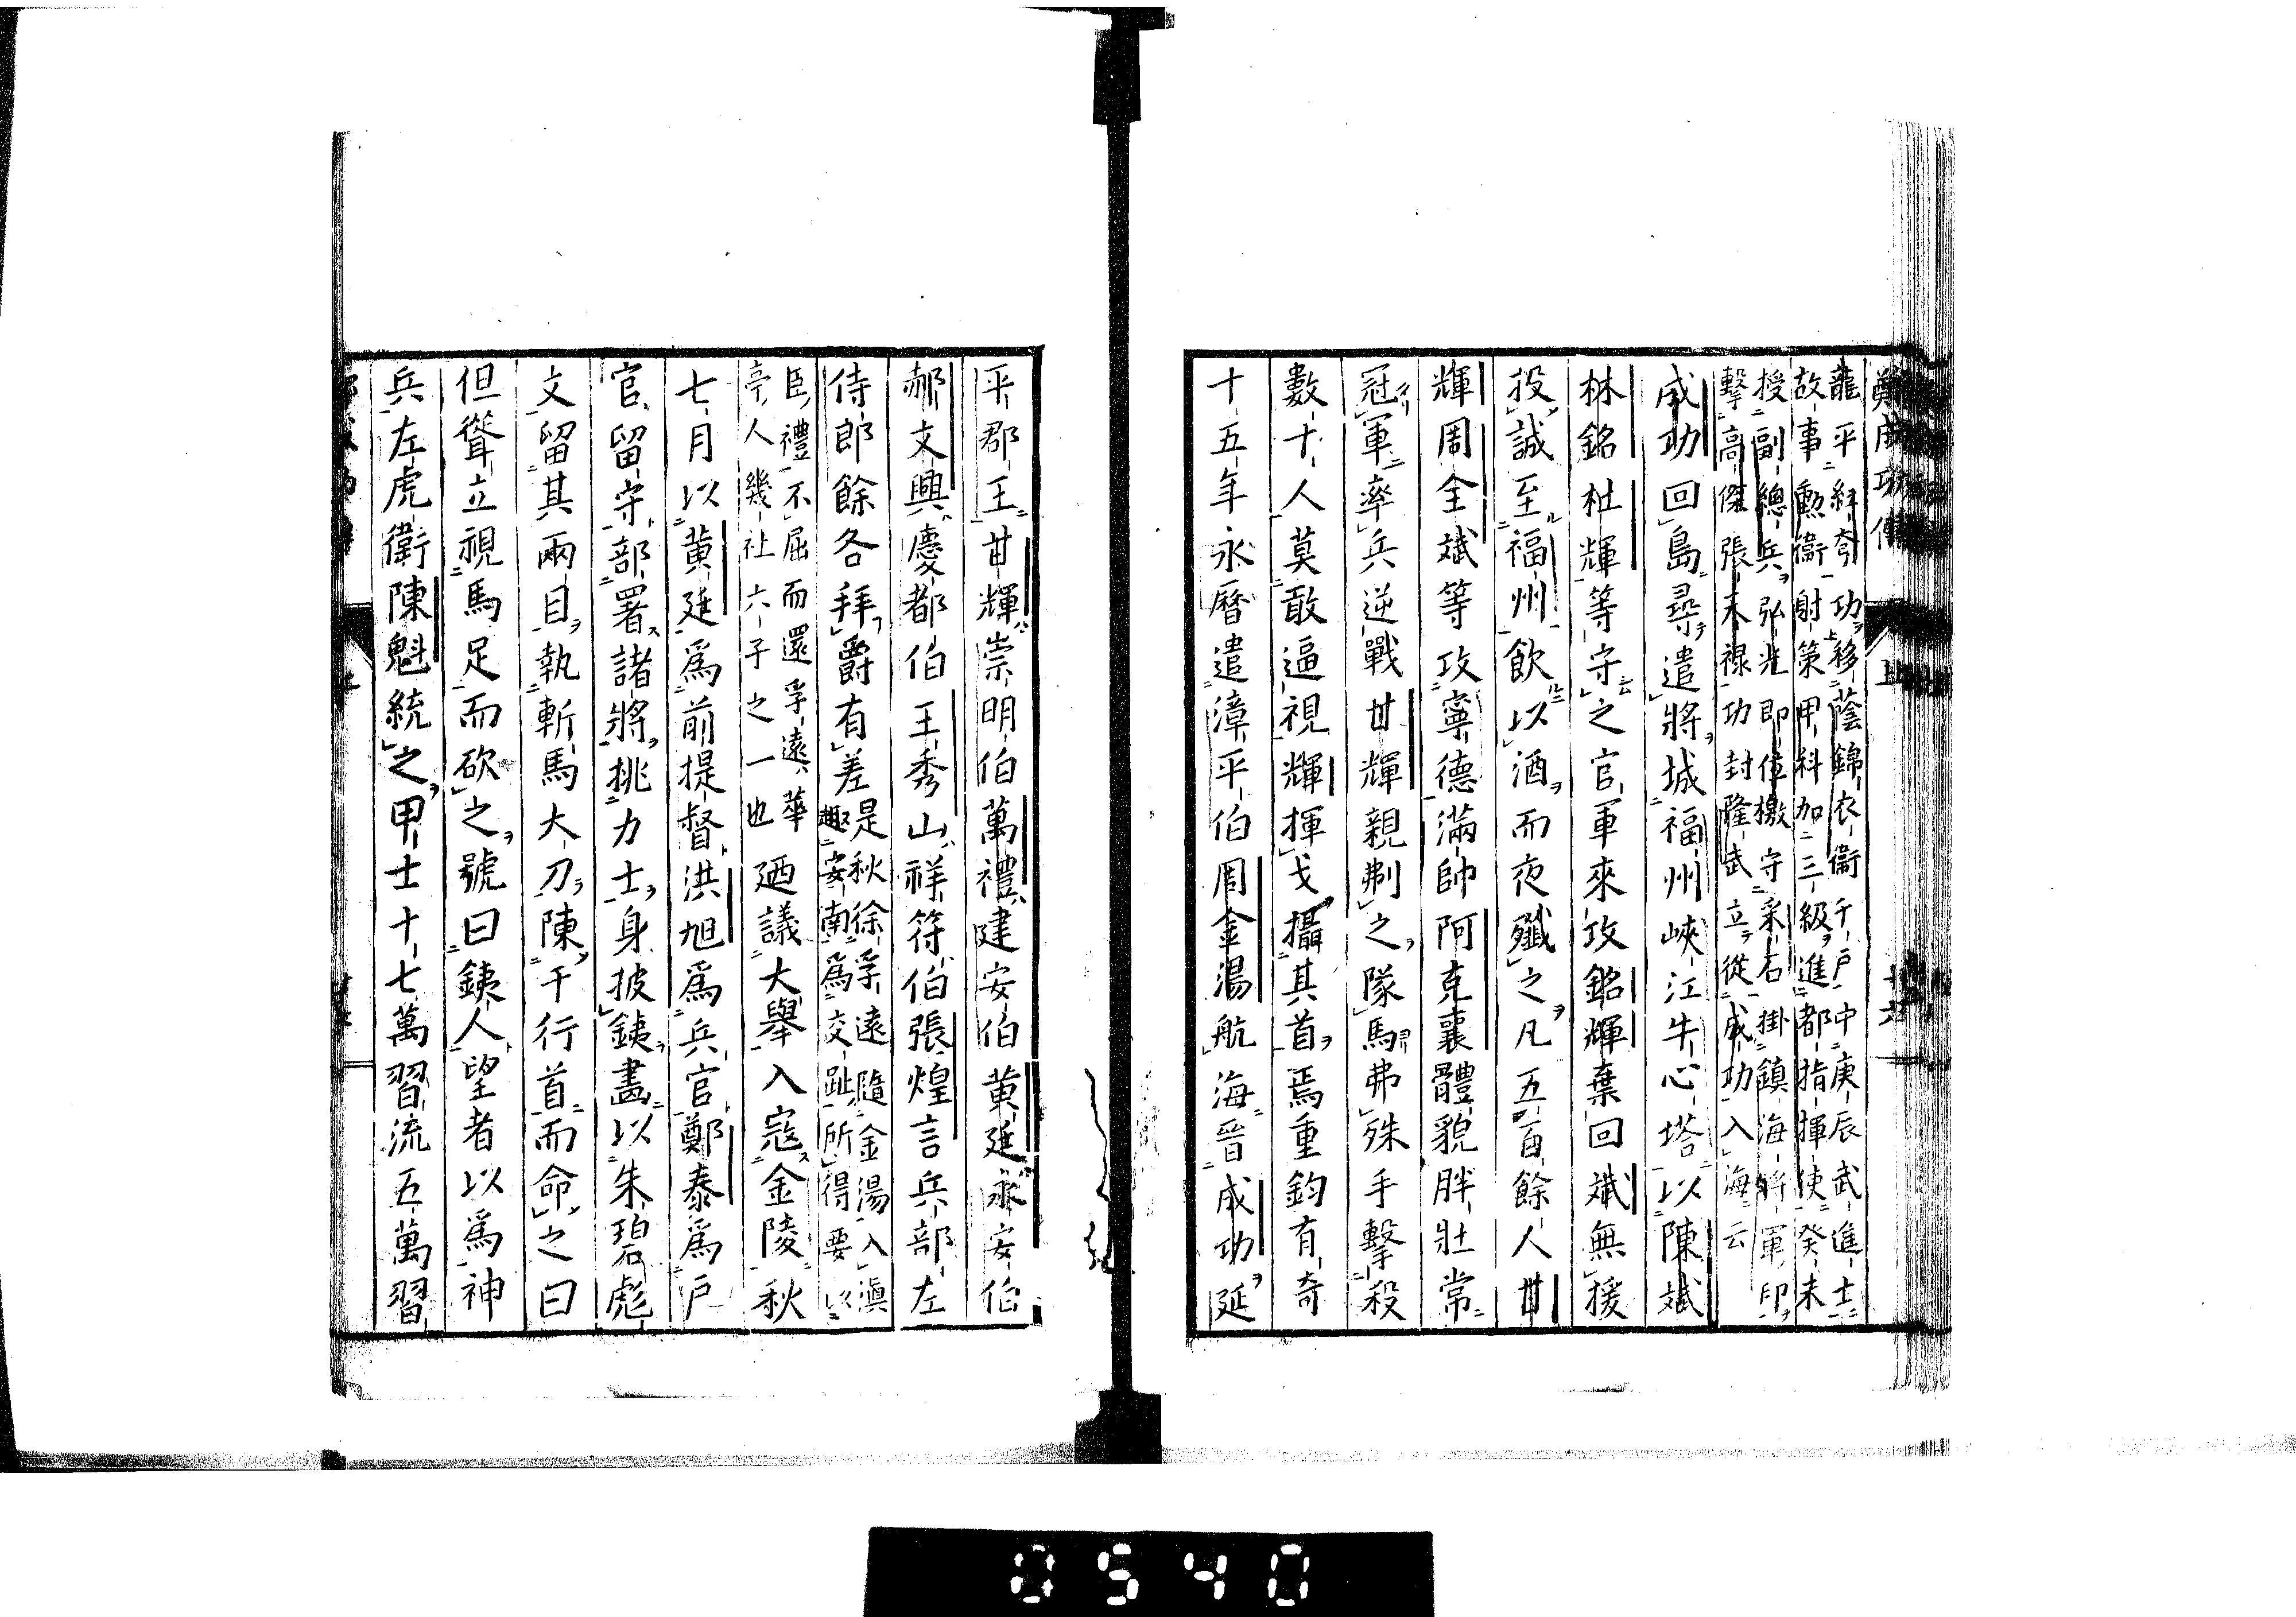 鄭成功傳
龍平紅夸功移蔭錦衣衞千戶中庚辰武進士
故事勳衞射策甲科加三級進都指揮使癸未
授副總兵弘光即位檄守采石掛鎮海將軍印
擊高傑張天祿功封隆武立從成功入海云
成功回島尋遣將城福州峽江牛心塔以陳斌
林銘杜輝等守之官軍來攻銘輝棄回斌無援
投誠至福州飲以酒而夜殲之凡五百餘人甘
輝周全斌等攻寧德滿帥阿克襄體貌胖壯常
冠軍率兵逆戰甘輝親刜之隊馬弗殊手擊殺
數十人莫敢逼視輝揮戈攝其首焉重鈞有奇
十五年永曆遣漳平伯周金湯航海晉成功延
平郡王甘輝崇明伯萬禮建安伯黃廷永安伯
郝文興慶都伯王秀山祥符伯張煌言兵部左
侍郎餘各拜爵有差
是秋徐孚遠隨金湯入滇
趣安南爲交趾所得要以
臣禮不屈而還孚遠華
亭人幾社六子之一也
廼議大舉入寇金陵秋
七月以黃廷爲前提督洪旭爲兵官鄭泰爲戶
官留守部署諸將挑力士身披鐵畫以朱碧彪
文留其兩目執斬馬大刀陳于行首而命之曰
但聳立視馬足而砍之號曰鐵人望者以爲神
兵左虎衞陳魁統之甲士十七萬習流五萬習
0540